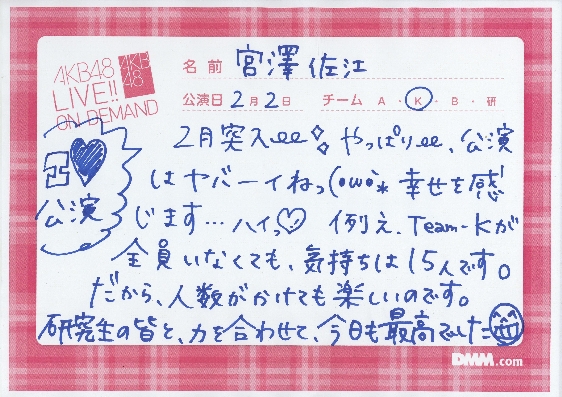 AKB48
LIVE!!
ON DEMAND
AKB
48
名前 宮澤佐江
公演日 2月2日 チーム A・K・B・研
公演
2月突入ee やっぱりee、公演
はヤバーイねっ(•ω•)* 幸せを感
じます…ハイっ♡ 例え、Team-Kが
全員いなくても、気持ちは15人です。
だから、人数がかけても楽しいのです。
研究生の皆と、力を合わせて、今日も最高でした
DMM.com